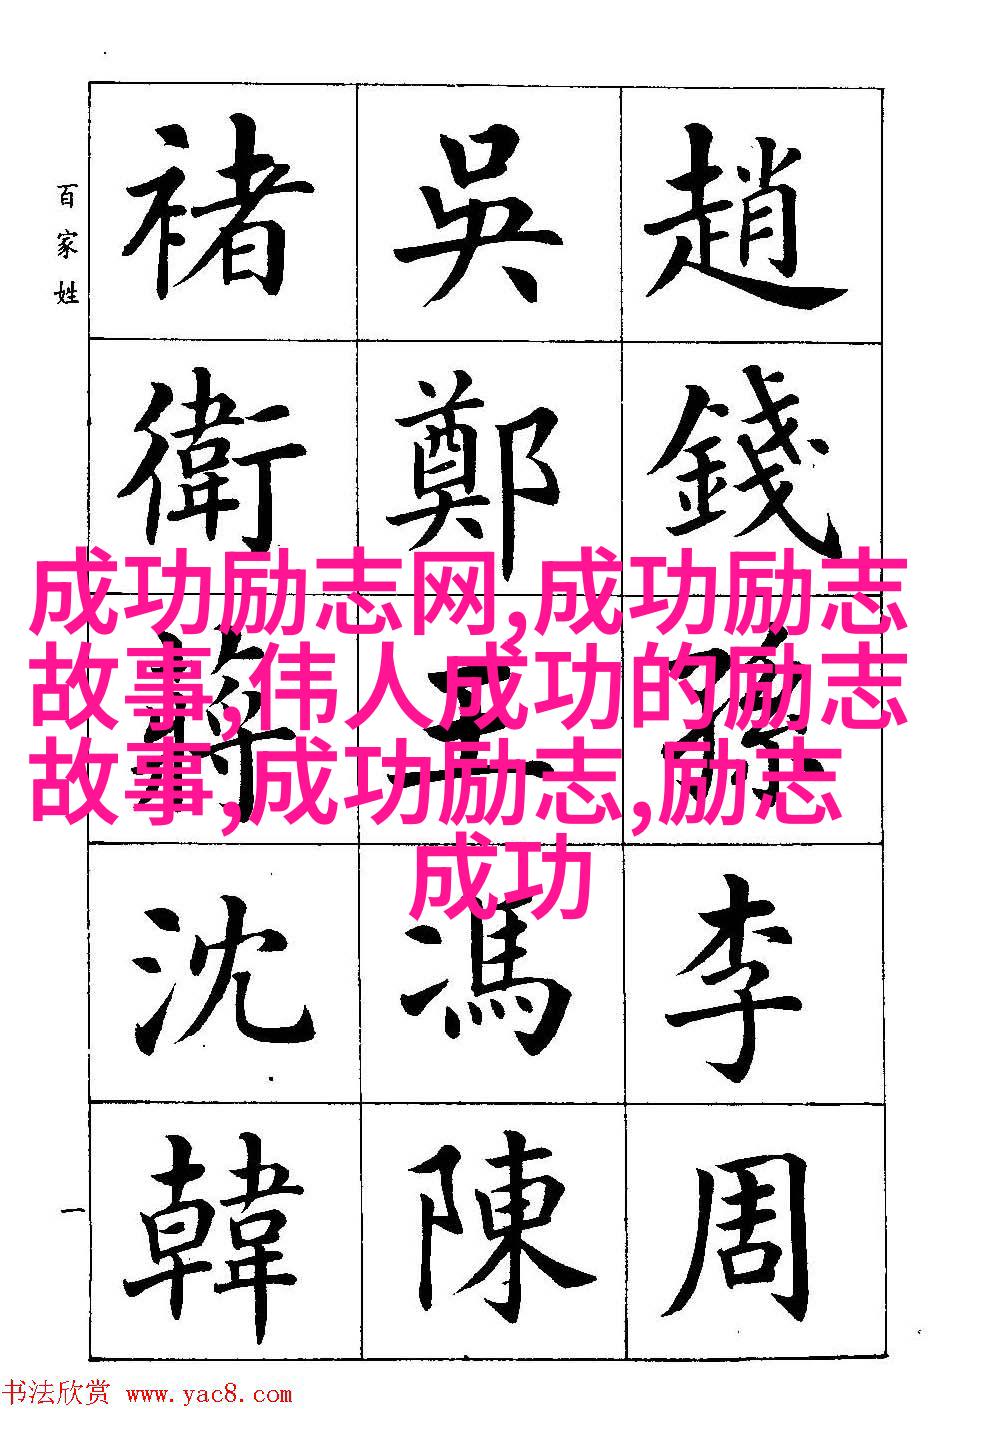 百家姓
趙錢孫李周
吳鄭王馮陳
褚衛蔣沈韓
一
成功励志网,成功励志
故事,伟人成功的励志
故事,成功励志,励志
成功
书法欣赏 www.yac8.com